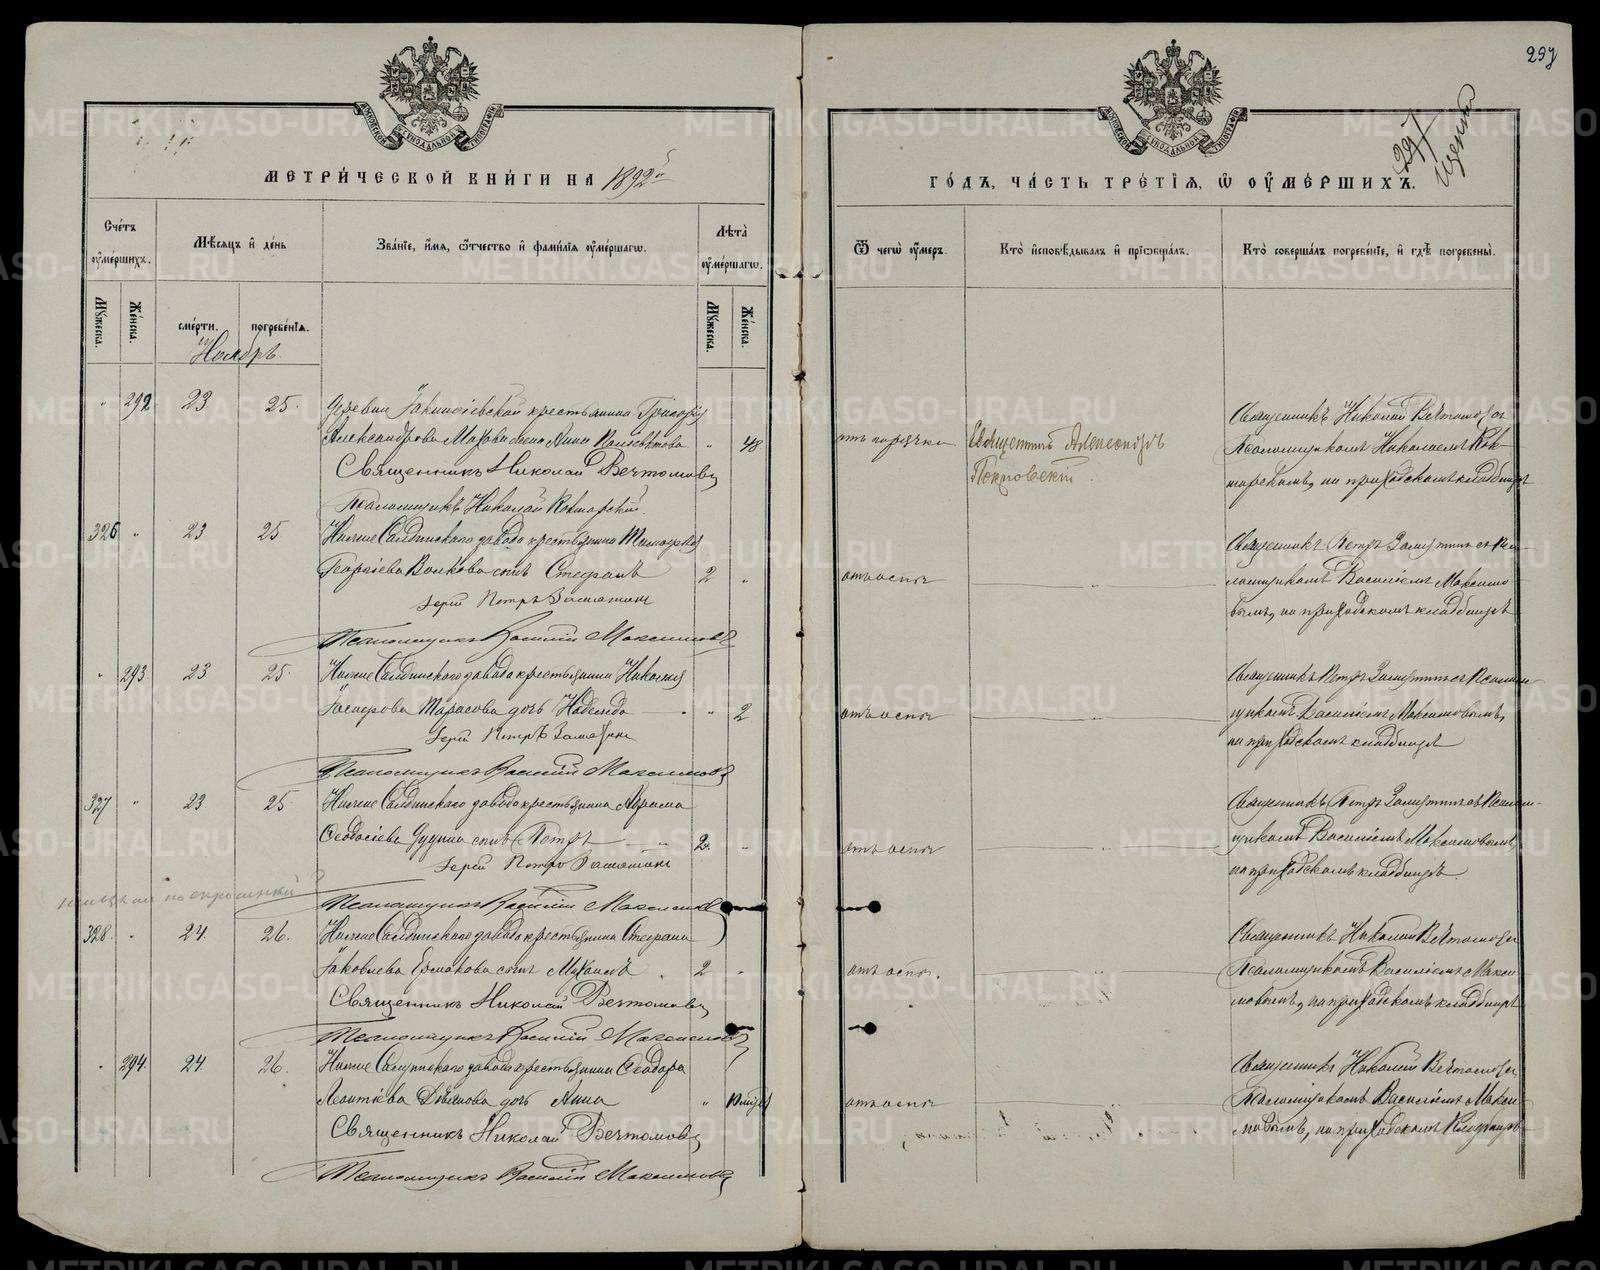 297
297
МЕТРИ́ЧЕСКОЙ КНИ́ГИ НА 1892й
ГО́ДЪ, ЧА́СТЬ ТРЕ́ТІѦ, Ѡ҆ ОУ҆МЕ́РШИХЪ.
Сче́тъ оу҆ме́ршихъ.
Мѣ́сѧцъ и҆ де́нь
Зва́нїе, и҆́мѧ, ѻ҆́тчество и҆ фами́лїѧ оу҆ме́ршагѡ.
Лѣ́та оу҆ме́ршагѡ.
Ѿ чегѡ̀ оу҆́меръ.
Кто̀ и҆сповѣ́дывалъ и҆ прїѡбща́лъ.
Кто̀ соверша́лъ погребе́нїе, и҆ гдѣ̀ погребены̀.
Мꙋ́жеска.
Же́нска.
сме́рти.
погребе́нїѧ.
Мꙋ́жеска.
Же́нска.
Ноябрь
" 292 23 25. Деревни Іакинѳіевской крестьянина Григорія
Александрова жена Анна " 48
Священникъ Николай Вечтомовъ
Псаломщикъ Николай
Священникъ Александръ
Покровскій.
Священникъ Николай Вечтомовъ съ
Псаломщикомъ Николаемъ
на приходскомъ кладбищѣ
326 " 23 25 Нижне Салдинскаго завода крестьянина Тимоѳея
Георгіева Волкова сынъ Стефанъ 2 "
Іерей Петръ Замятинъ
Псаломщикъ Василій Максимовъ
отъ оспы
Священникъ Петръ Замятинъ съ Пса-
ломщикомъ Василіемъ Максимо-
вымъ, на приходскомъ кладбищѣ
" 293. 23 25. Нижне Салдинскаго завода крестьянина Николая
Тарасова дочь Надежда " 2
Іерей Петръ Замятинъ
Псаломщикъ Василій Максимовъ
отъ оспы
Священникъ Петръ Замятинъ съ Псалом-
щикомъ Василіемъ Максимовымъ,
на приходскомъ кладбищѣ
327 " 23 25 Нижне Салдинскаго завода крестьянина Абрама
Ѳеодосіева сынъ Петръ 2. "
Іерей Петръ Замятинъ
Псаломщикъ Василій Максимовъ
отъ оспы
Священникъ Петръ Замятинъ съ Псалом-
щикомъ Василіемъ Максимовымъ,
на приходскомъ кладбищѣ.
328. " 24. 26. Нижне Салдинскаго завода крестьянина Стефана
Іаковлева Ермакова сынъ Михаилъ 2 "
Священникъ Николай Вечтомовъ
Псаломщикъ Василій Максимовъ
отъ оспы.
Священникъ Николай Вечтомовъ съ
Псаломщикомъ Василіемъ Макси-
мовымъ, на приходскомъ кладбищѣ
" 294. 24 26. Нижне Салдинскаго завода крестьянина Ѳеодора
Леонтіева дочь Анна "
Священникъ Николай Вечтомовъ
Псаломщикъ Василій Максимовъ
отъ оспы
Священникъ Николай Вечтомовъ съ
Псаломщикомъ Василіемъ Макси-
мовымъ, на приходскомъ кладбищѣ
METRIKI.GASO-URAL.RU